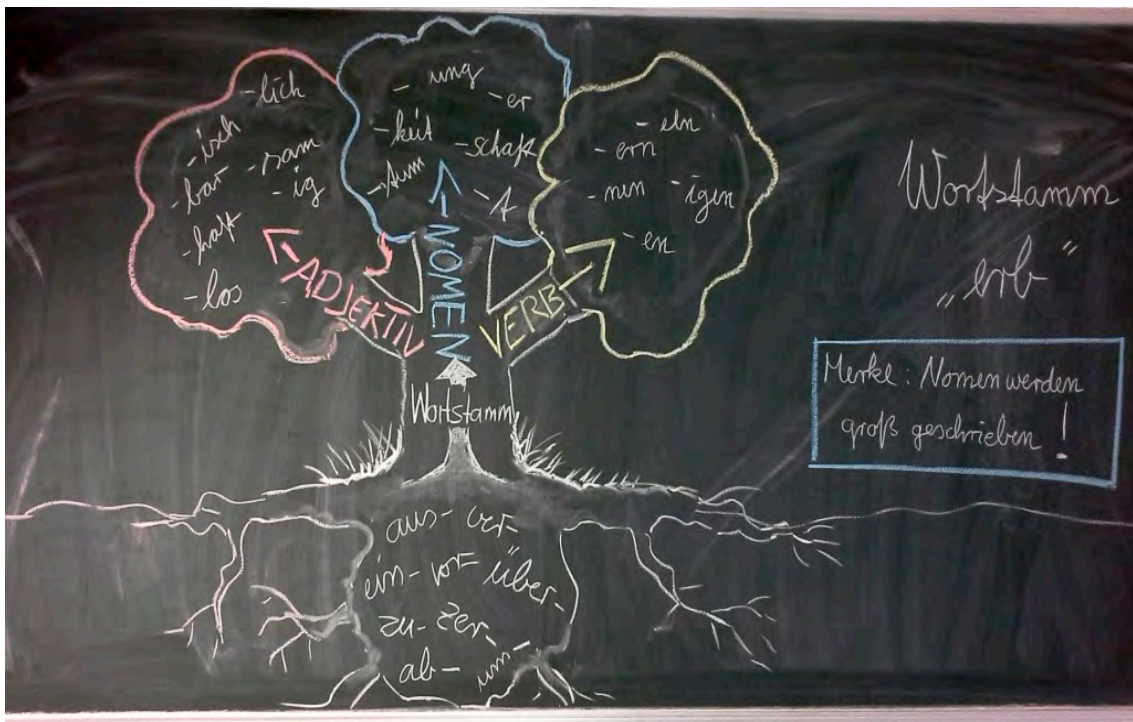 -lich
-isch
-sam
-bar
-ig
-haft
-los
-ung
-er
-keit
-schaft
-tum
-t
-eln
-ern
-nen
-igen
-en
ADJEKTIV
NOMEN
VERB
Wortstamm
aus- ver-
ein- vor- über-
zu- zer-
ab- um-
Wortstamm
„erb“
Merke: Nomen werden
groß geschrieben!